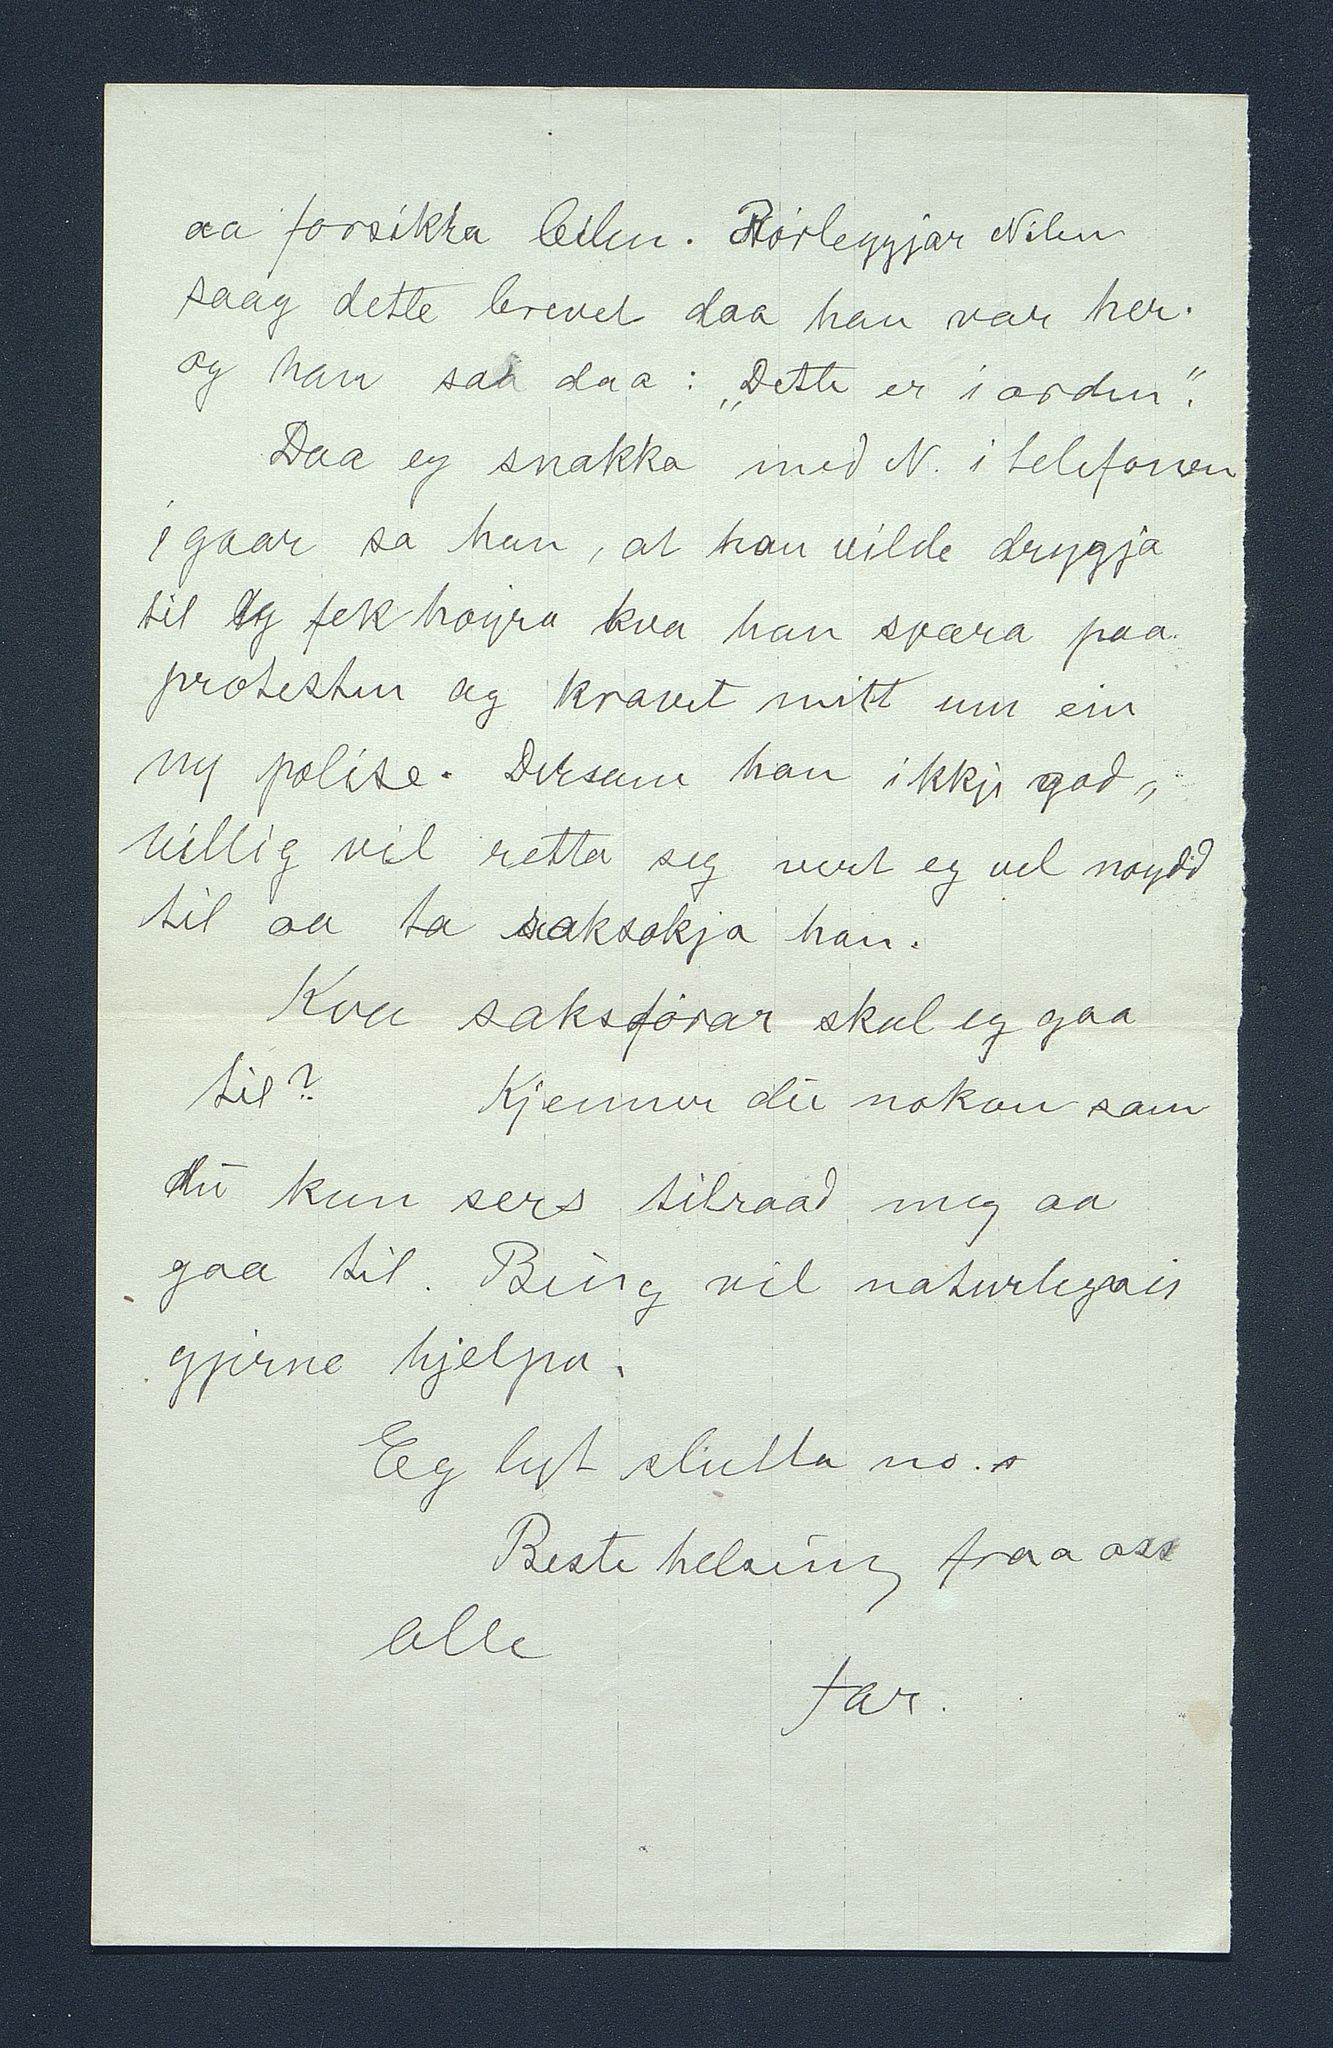 aa forsikra bilen. Rörleggjar Nilen
saag dette brevet daa han var her.
og han saa daa: „Dette er i orden".
Daa eg snakka med N. i telefonen
igaar sa han, at han vilde drygja
til eg fek høyra kva han svara paa
protesten og kravet mitt um ein
ny polise. Dersom han ikkje god„
villig vil retta seg vert eg vel noydd
til aa ta saksokja han.
Kva saksförar skal eg gaa
til? Kjenner du nokon som
du kan sers tilraad meg aa
gaa til. Bing vil naturlegvis
gjerne hjelpa.
Eg lyt slutta no.
Beste helsing fraa oss
alle
far.